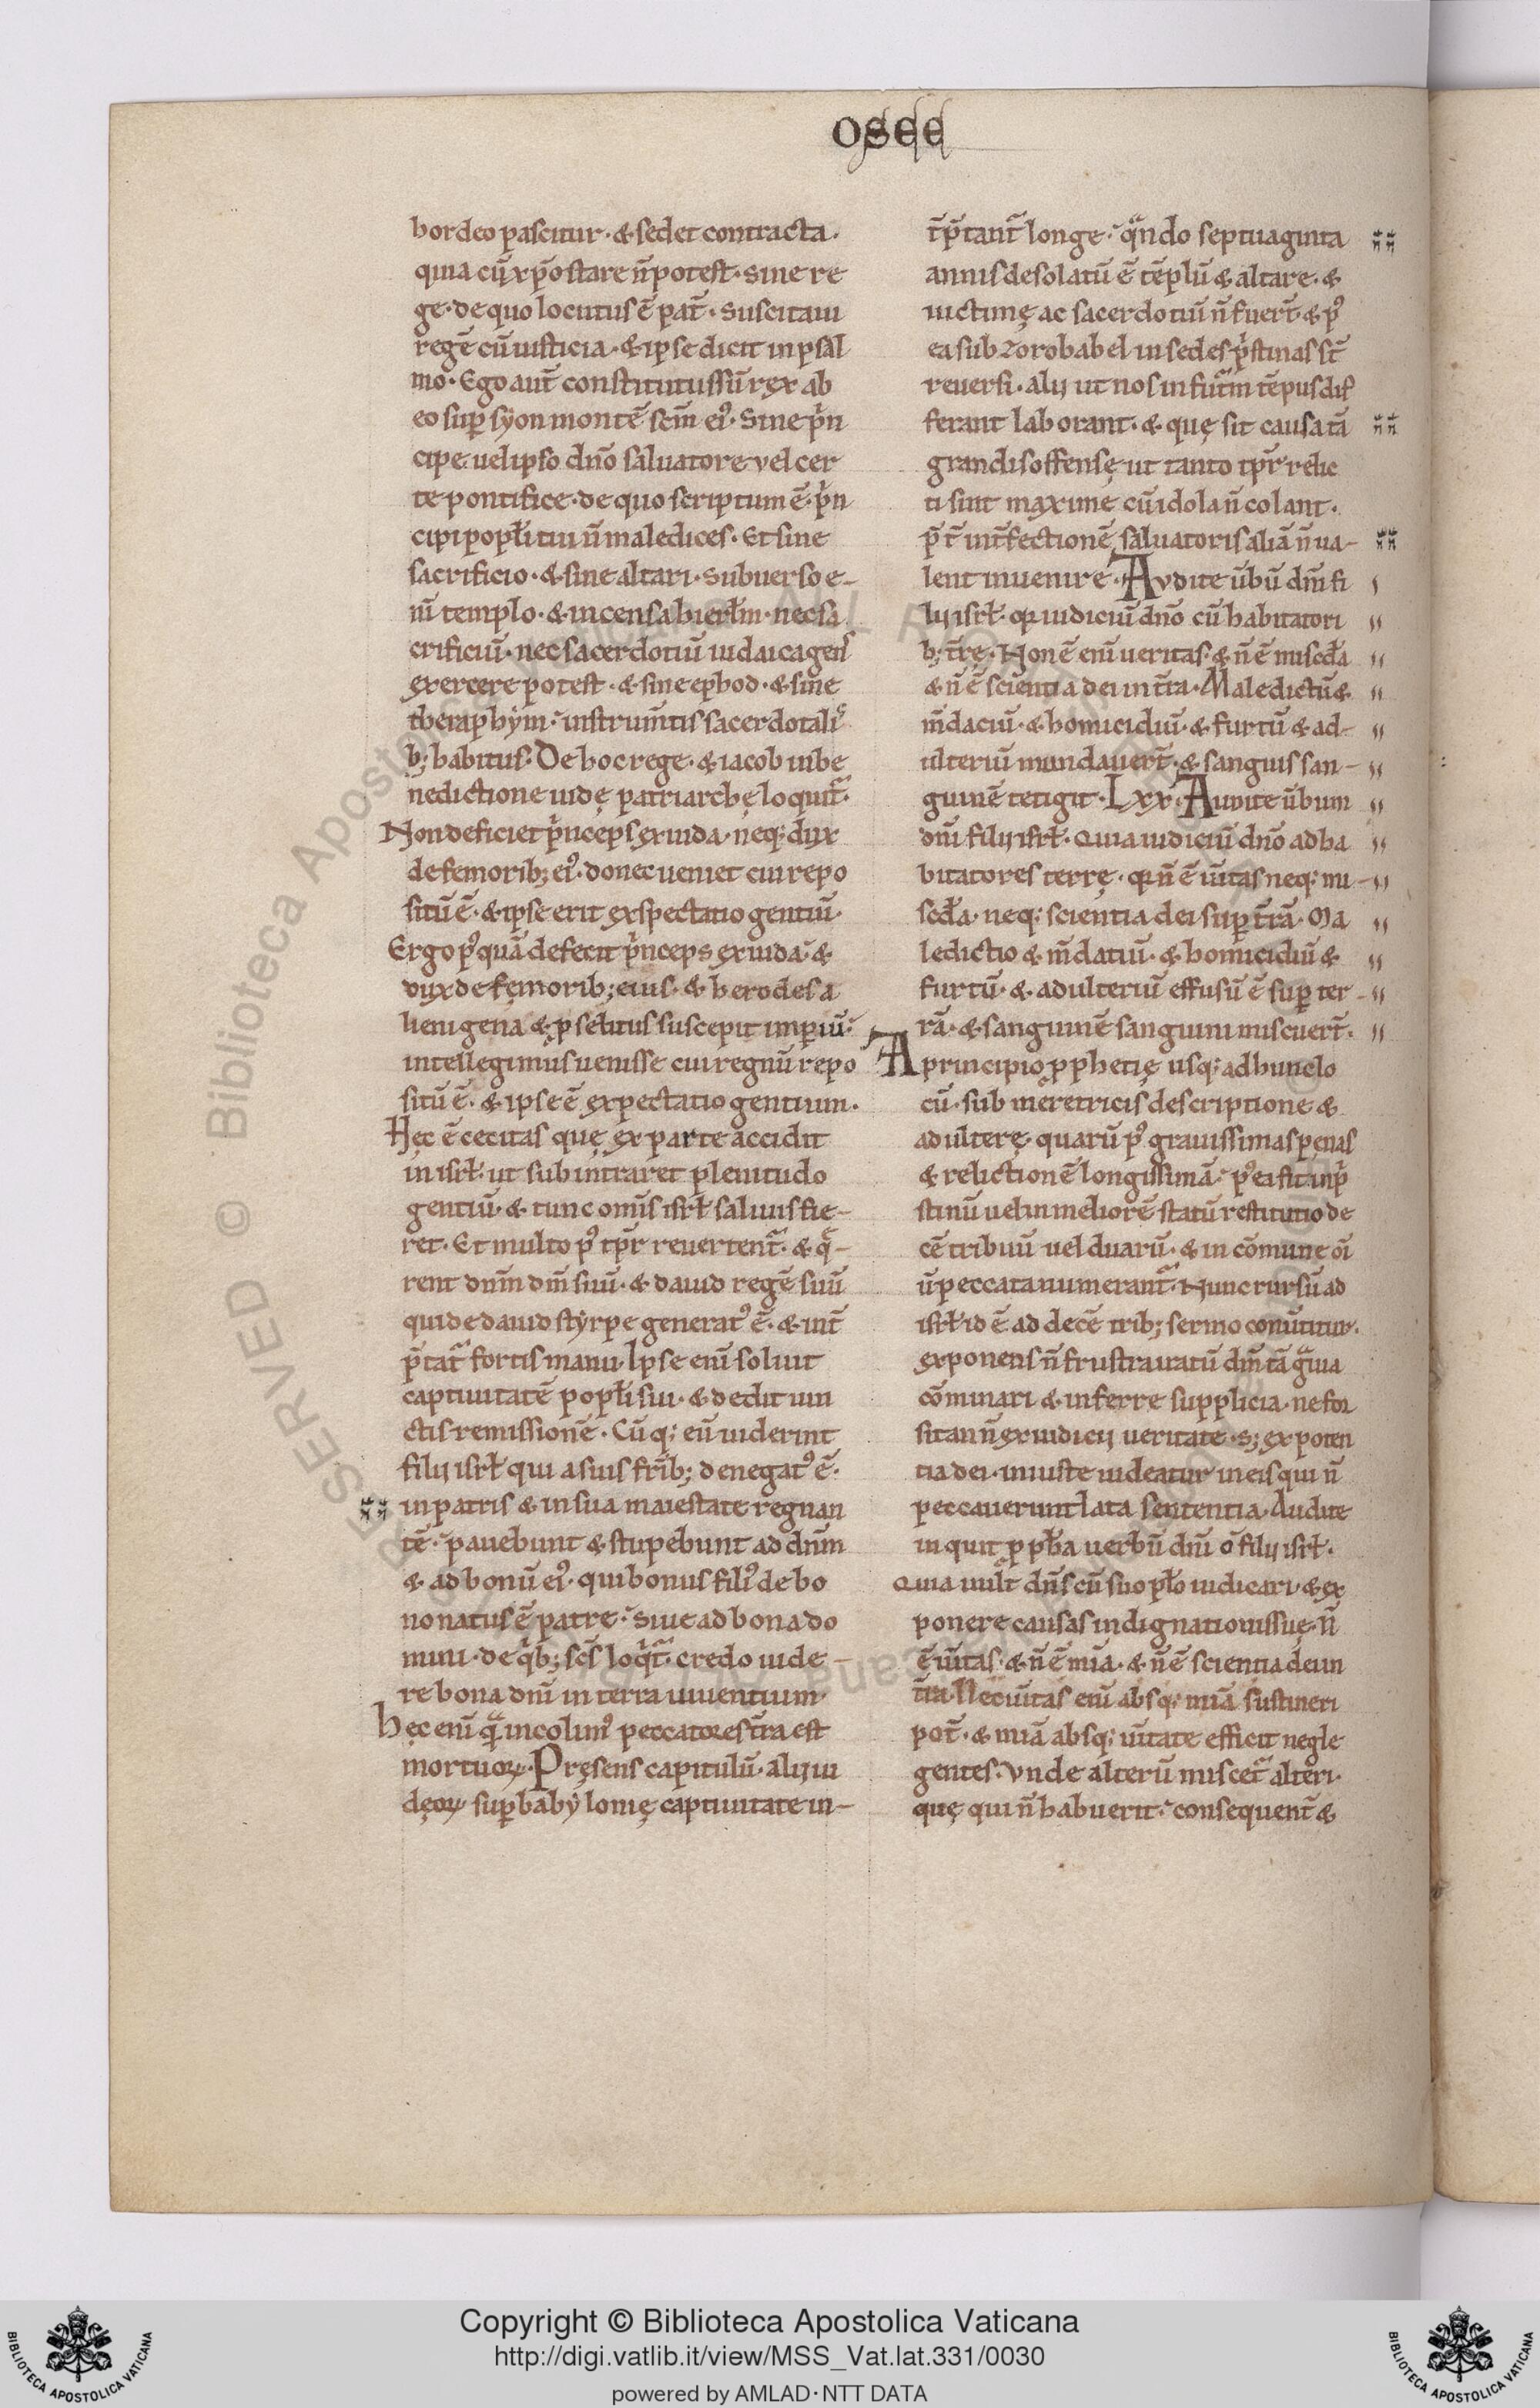 osee
hordeo pascitur· & sedet contracta·
quia cū xp̄o stare n̄ potest· Sine re
ge· de quo locutus ē pat̄· Suscitaui
regē cū iusticia· & ipse dicit in psal
mo· Ego aut̄ constitutus sū rex ab
eo sup̱ syon montē scm̄ ei᾽· Sine p̄n
cipe· uel ipso dn̄o saluatore vel cer
te pontifice· de quo scriptum ē· p̄n
cipi popłi tui n̄ maledices· Et sine
sacrificio· & sine altari· subuerso e-
nī templo· & incensa hierłm· nec sa
crificiū· nec sacerdotiū iudaica gens
exercere potest· & sine ephod· & sine
theraphym· instrum̄tis sacerdotali
b; habitus· De hoc rege· & iacob in be
nedictione iudę patriarchę loquit̄·
Non deficiet p̄nceps ex iuda· neq; dux
de femorib; ei᾽· donec ueniet cui repo
sitū ē· & ipse erit exspectatio gentiū·
Ergo p᾽quā defecit p̄nceps ex iuda· &
dux de femorib; eius· & herodes a
lienigena & pselitus suscepit imp̱iū·
intellegimus uenisse cui regnū repo
sitū ē· & ipse ē expectatio gentium·
Hęc ē cecitas quę ex parte accidit
in isrł· ut subintraret plenitudo
gentiū· & tunc omīs isrł saluus fie-
ret· Et multo p᾽ tp̄r reuertent̄· & q̄-
rent dnm̄ dm̄ suū· & dauid regē suū
qui de dauid styrpe generat᾽ ē· & int̄
p̄tat̄ fortis manu· Ipse enī soluit
captiuitatē popłi sui· & dedit uin
ctis remissionē· Cū q; eū uiderint
filii isrł qui a suis frīb; denegat᾽ ē·
in patris & in sua maiestate regnan
tē· pauebunt & stupebunt ad dnm̄
& ad bonū ei᾽· qui bonus fili᾽ de bo
no natus ē patre· Siue ad bona do
mini· de qb; scs̄ loqt̄· credo uide-
re bona dnī in terra uiuentium·
hęc enī q̄ incolim᾽ peccatores t̄ra est
mortuoꝝ· Pręsens capitulū· alii iu
dęoꝝ sup̱ babylonię captiuitate in-
t̄p̄tant̄ longe· qn̄do septuaginta
annis desolatū ē tēplū & altare· &
uictimę ac sacerdotiū n̄ fuer̄t· & p᾽
ea sub zorobabel in sedes p̄stinas st̄
reuersi· alii ut nos in fut̄m tēpus dif
ferant laborant· & quę sit causa tā
grandis offensę ut tanto tp̄r relic
ti sint maxime cū idola n̄ colant·
p̄t̄ int̄fectionē saluatoris aliā n̄ ua-
lent inuenire· Avdite ūbū dnī fi
lii isrł· qꝛ iudiciū dn̄o cū habitatori
b; t̄rę· Non ē enī ueritas· & n̄ ē misc̄da
& n̄ ē scientia dei in t̄ra· Maledictū &
m̄daciū· & homicidiū· & furtū & ad-
ulteriū inundauer̄t· & sanguis san-
guinē tetigit· Lxx· Audite ūbum
dnī filii isrł· Quia iudiciū dn̄o ad ha
bitatores terrę· qꝛ n̄ ē uītas neq; mi-
sc̄da· neq; scientia dei sup̱ t̄rā· Ma
ledictio & m̄datiū· & homicidiū &
furtū· & adulteriū effusū ē sup̱ ter-
rā· & sanguinē sanguini miscuer̄t·
A principio pphetię usq; ad hunc lo
cū· sub meretricis descriptione &
adulterę· quarū p᾽ grauissimas pęnas
& relictionē longissimā· p᾽ea fit in p̄
stinū uel in meliorē statū restitutio de
cē tribuū uel duarū· & in cōmune oī
ū peccata numerant̄· Nunc rursū ad
isrł id ē ad decē trib; sermo conūtitur·
exponens n̄ frustra iratū dm̄ tā g̃uia
cōminari & inferre supplicia· ne for
sitan n̄ ex iudicii ueritate· s; ex poten
tia dei· iniuste uideatur in eis qui n̄
peccauerunt lata sententia· Audite
inquit ppha uerbū dnī o filii isrł·
Quia uult dn̄s cū suo pło iudicari· & ex
ponere causas indignationis suę· n̄
ē uītas· & n̄ ē mīa· & n̄ ē scientia dei in
t̄ra· Nec uītas enī absq; mīa sustineri
pot̄· & mīa absq; uītate efficit negle
gentes· Vnde alterū miscet̄ alteri·
quę qui n̄ habuerit· consequent̄ &
Copyright © Biblioteca Apostolica Vaticana
http://digi.vatlib.it/view/MSS_Vat.lat.331/0030
powered by AMLAD·NTT DATA